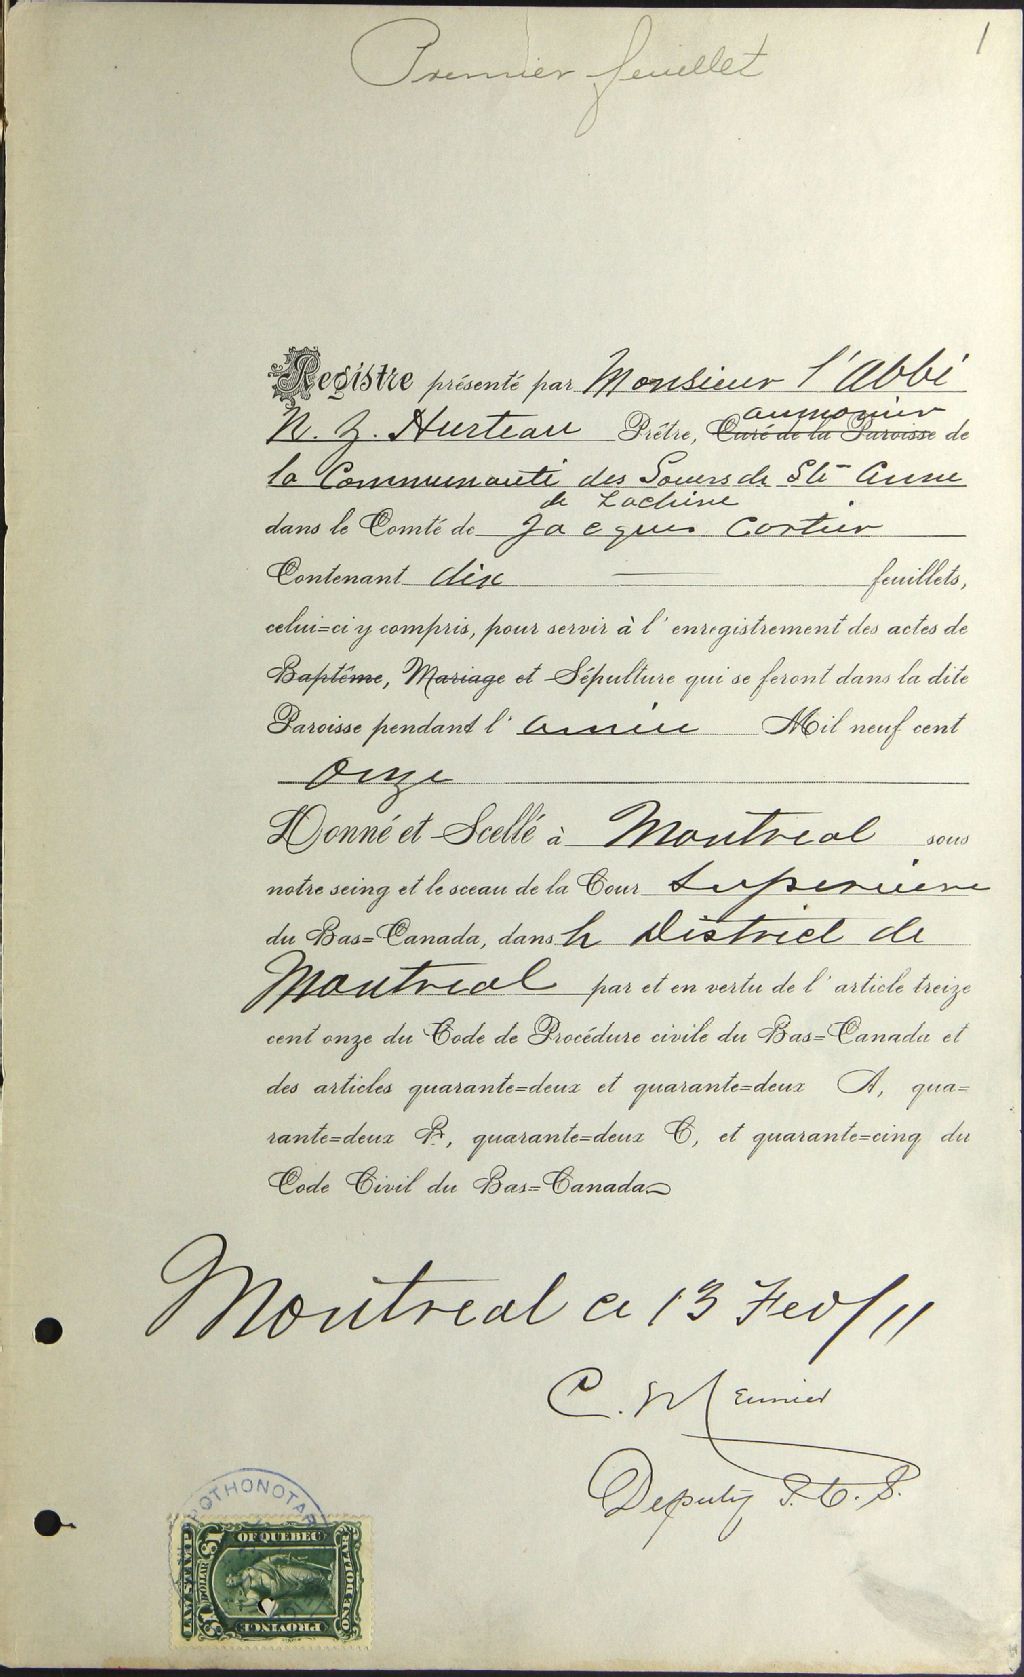 Premier feuillet
1
Registre présenté par Monsieur l'Abbé
N. Z. Hurteau Prêtre, Curé de la Paroisse de
aumonier
la Communauté des Soeurs de Ste Anne
de Lachine
dans le Comté de Jacques Cartier
Contenant dix feuillets,
celui=ci y compris, pour servir à l'enregistrement des actes de
Baptême, Mariage et Sépulture qui se feront dans la dite
Paroisse pendant l'année Mil neuf cent
onze
Donné et Scellé à Montreal sous
notre seing et le sceau de la Cour Superieure
du Bas=Canada, dans le District de
Montreal par et en vertu de l'article treize
cent onze du Code de Procédure civile du Bas=Canada et
des articles quarante=deux et quarante=deux A, qua=
rante=deux B, quarante=deux C, et quarante=cinq du
Code Civil du Bas=Canada
Montreal ce 13 Fev/11
C. Meunier
Deputy P.C.S.
PROTHONOTAR
LAW STAMP
$1 DOLLAR $1
OF QUEBEC
PROVINCE
ONE DOLLAR